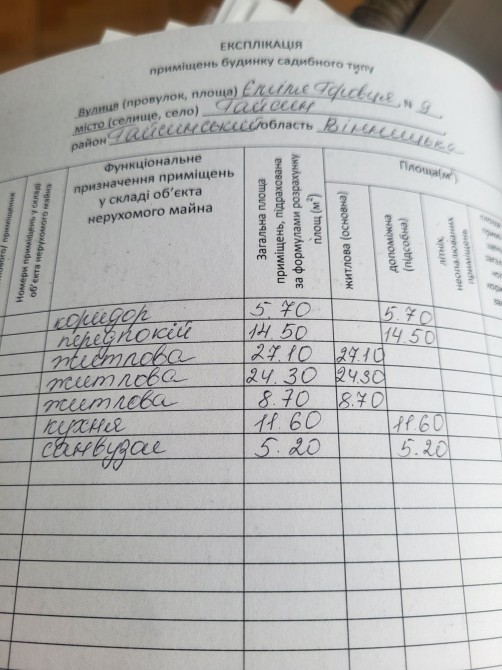 ЕКСПЛІКАЦІЯ
приміщень будинку садибного типу
Вулиця (провулок, площа) N 9
місто (селище, село) Гайсин
район Гайсинський область Вінницька
Номери приміщень у складі об'єкта нерухомого майна
Функціональне призначення приміщень у складі об'єкта нерухомого майна
Загальна площа приміщень, підрахована за формулами розрахунку площ (м²)
Площа(м²)
житлова (основна)
допоміжна (підсобна)
літніх, неопалюваних приміщень
коридор 5.70 5.70
передпокій 14.50 14.50
житлова 27.10 27.10
житлова 24.30 24.30
житлова 8.70 8.70
кухня 11.60 11.60
санвузол 5.20 5.20